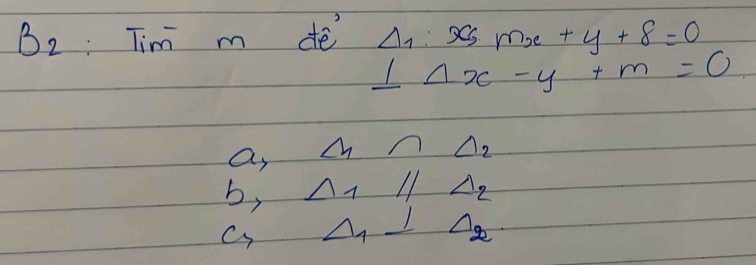 B2 : Tìm m để Δ1 : mx + y + 8 = 0
⊥ Δ x - y + m = 0
a, Δ1 ∩ Δ2
b, Δ1 // Δ2
c, Δ1 ⊥ Δ2